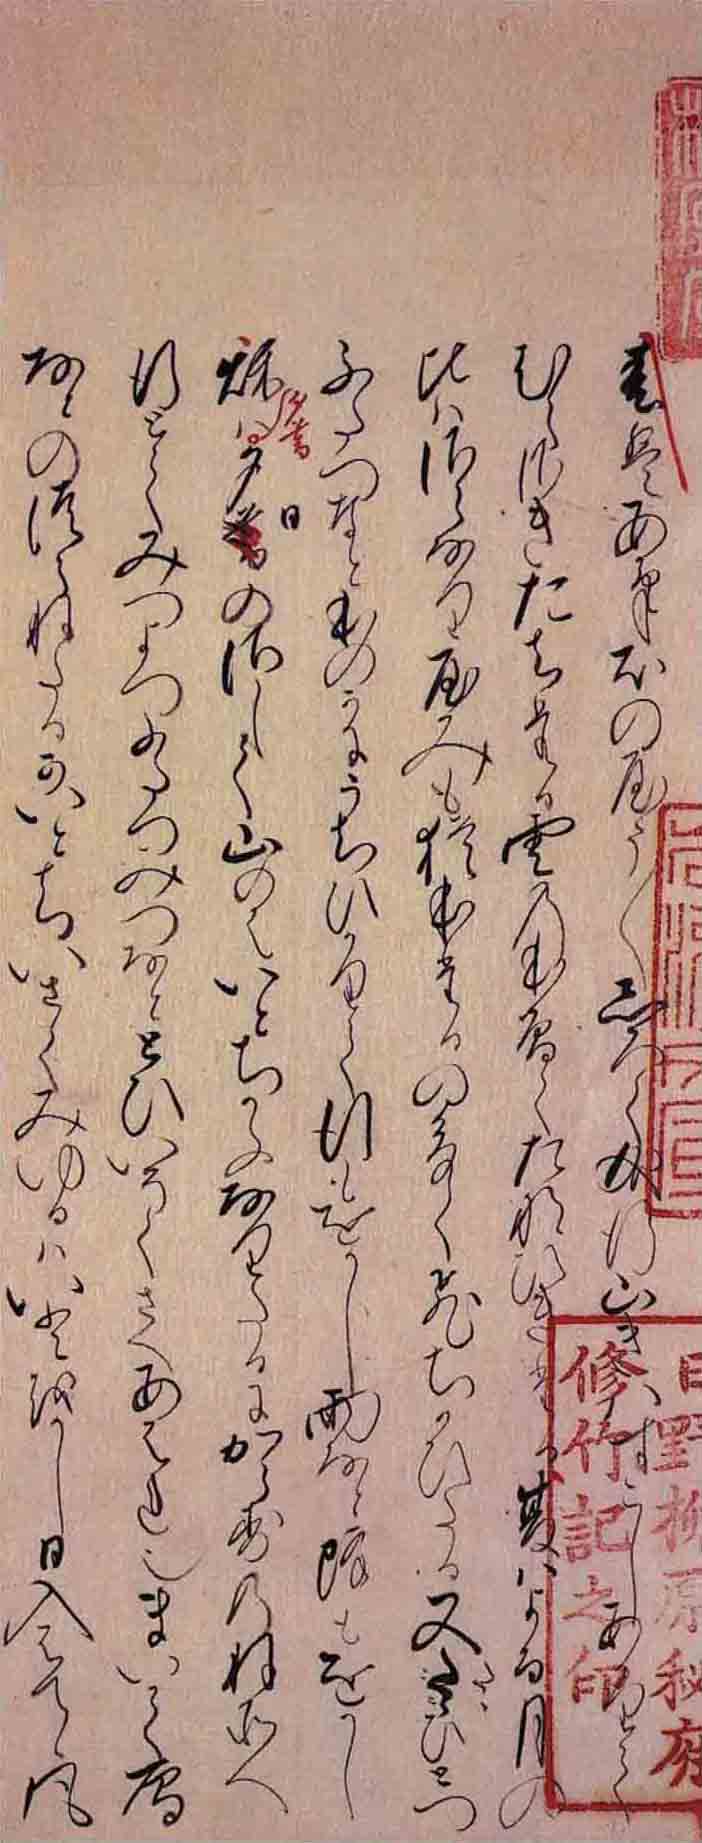 春はあけほのやう〱しろく成行山きはすこしあかりて
むらさきたちたる雲のほそくたなひきたる夏ハよる月の
比ハさらなりやみも猶ほたるのおほく飛ちかひたる又たゝひとつ
ふたつなとほのかにうちひかりて行もをかし雨なと降もをかし
秋ハ夕日のさして山のはいとちかうなりたるにからすのね所へ
行とてみつよつふたつみつなととひいそくさへあはれ也まいて雁
なとのつらねたるかいとちいさくみゆるハいとをかし日入はてゝ風
日野柳原秘府
修竹記之印